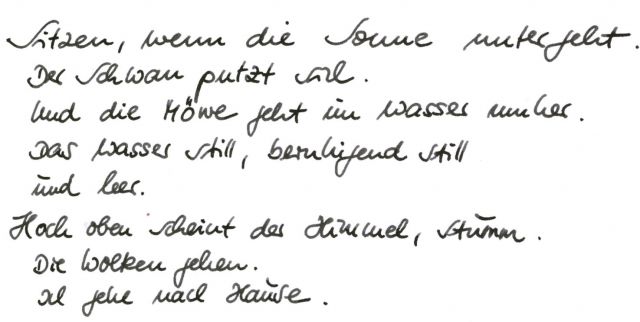 Sitzen, wenn die Sonne untergeht.
Der Schwan putzt sich.
Und die Möwe geht im Wasser umher.
Das Wasser still, beruhigend still
und leer.
Hoch oben scheint der Himmel, stumm.
Die Wolken gehen.
Ich gehe nach Hause.